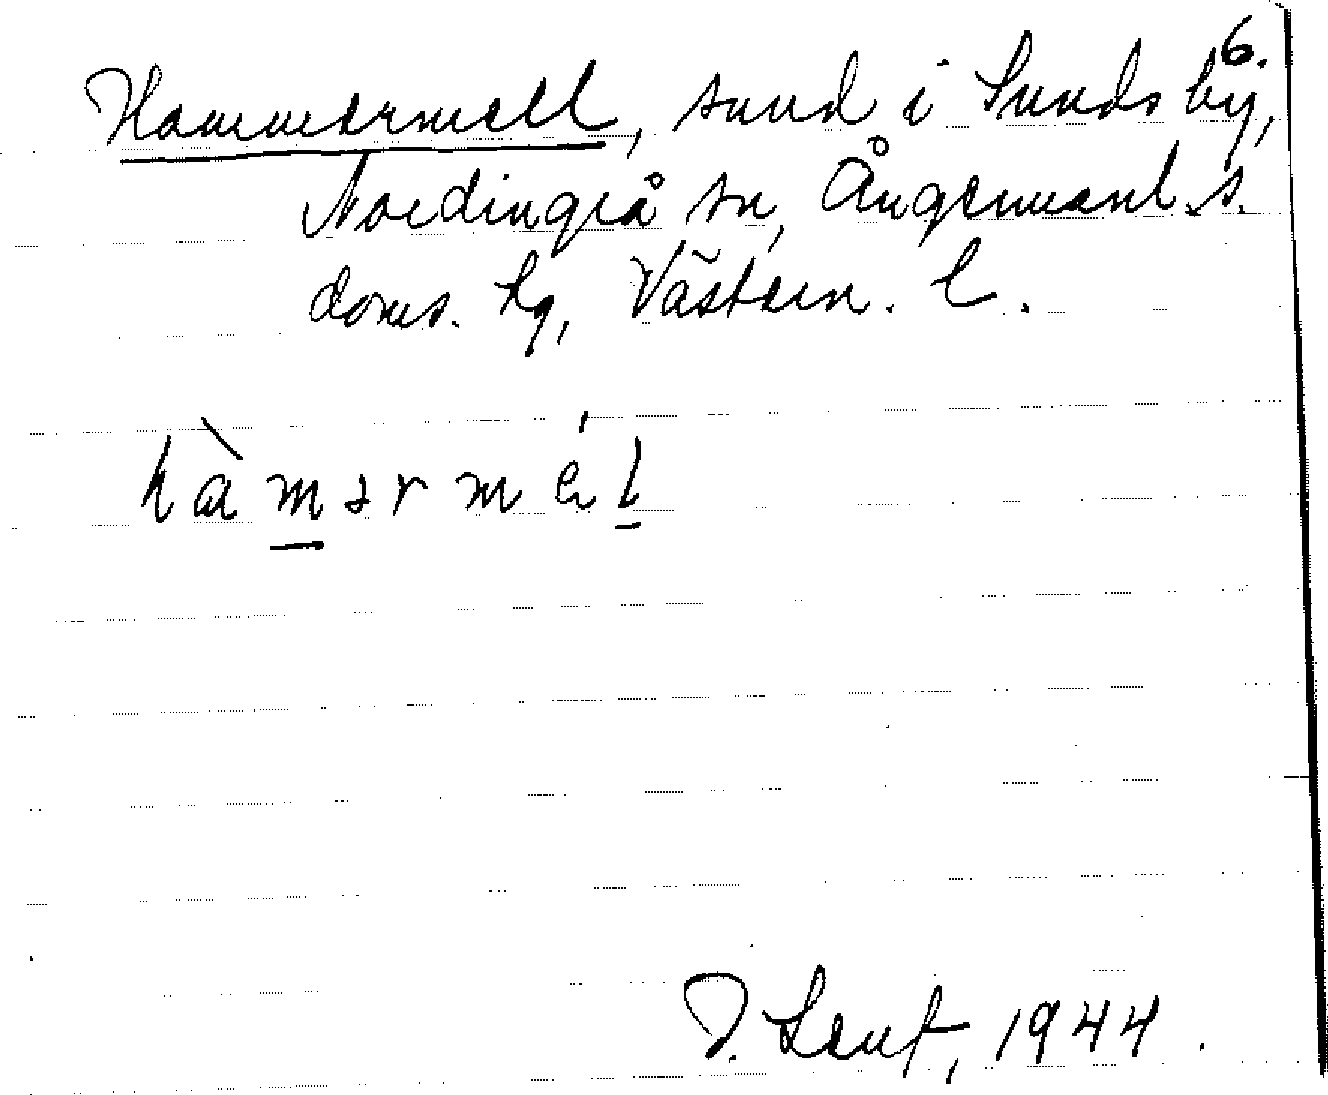 6.
Hammermell, sund i Sunds by,
Nordingrå sn, Ångermanl. s.
doms. hg, Västern. l.
hàmərmél
1944.